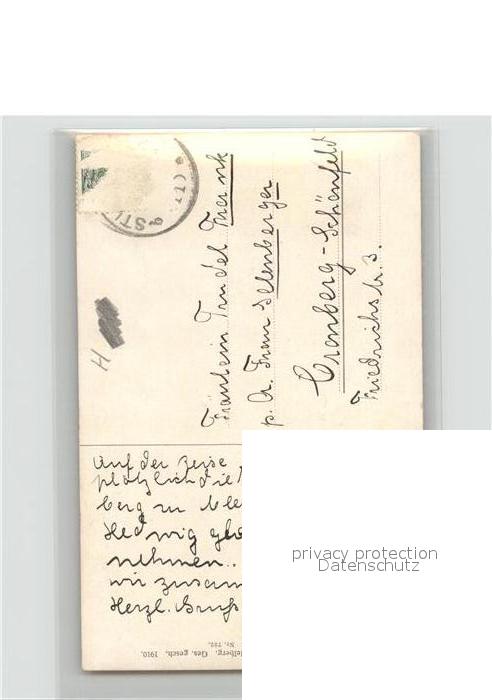 Fräulein Trudel Frank
p. A. Frau
Cronberg-Schönfeld
Friedrichstr. 3.
H
Auf der Reise
plötzlich die
berg zu
Hedwig
nehmen..
wir zusam
Herzl. Gruß
Ges. gesch. 1910.
Nr. 732.
privacy protection
Datenschutz